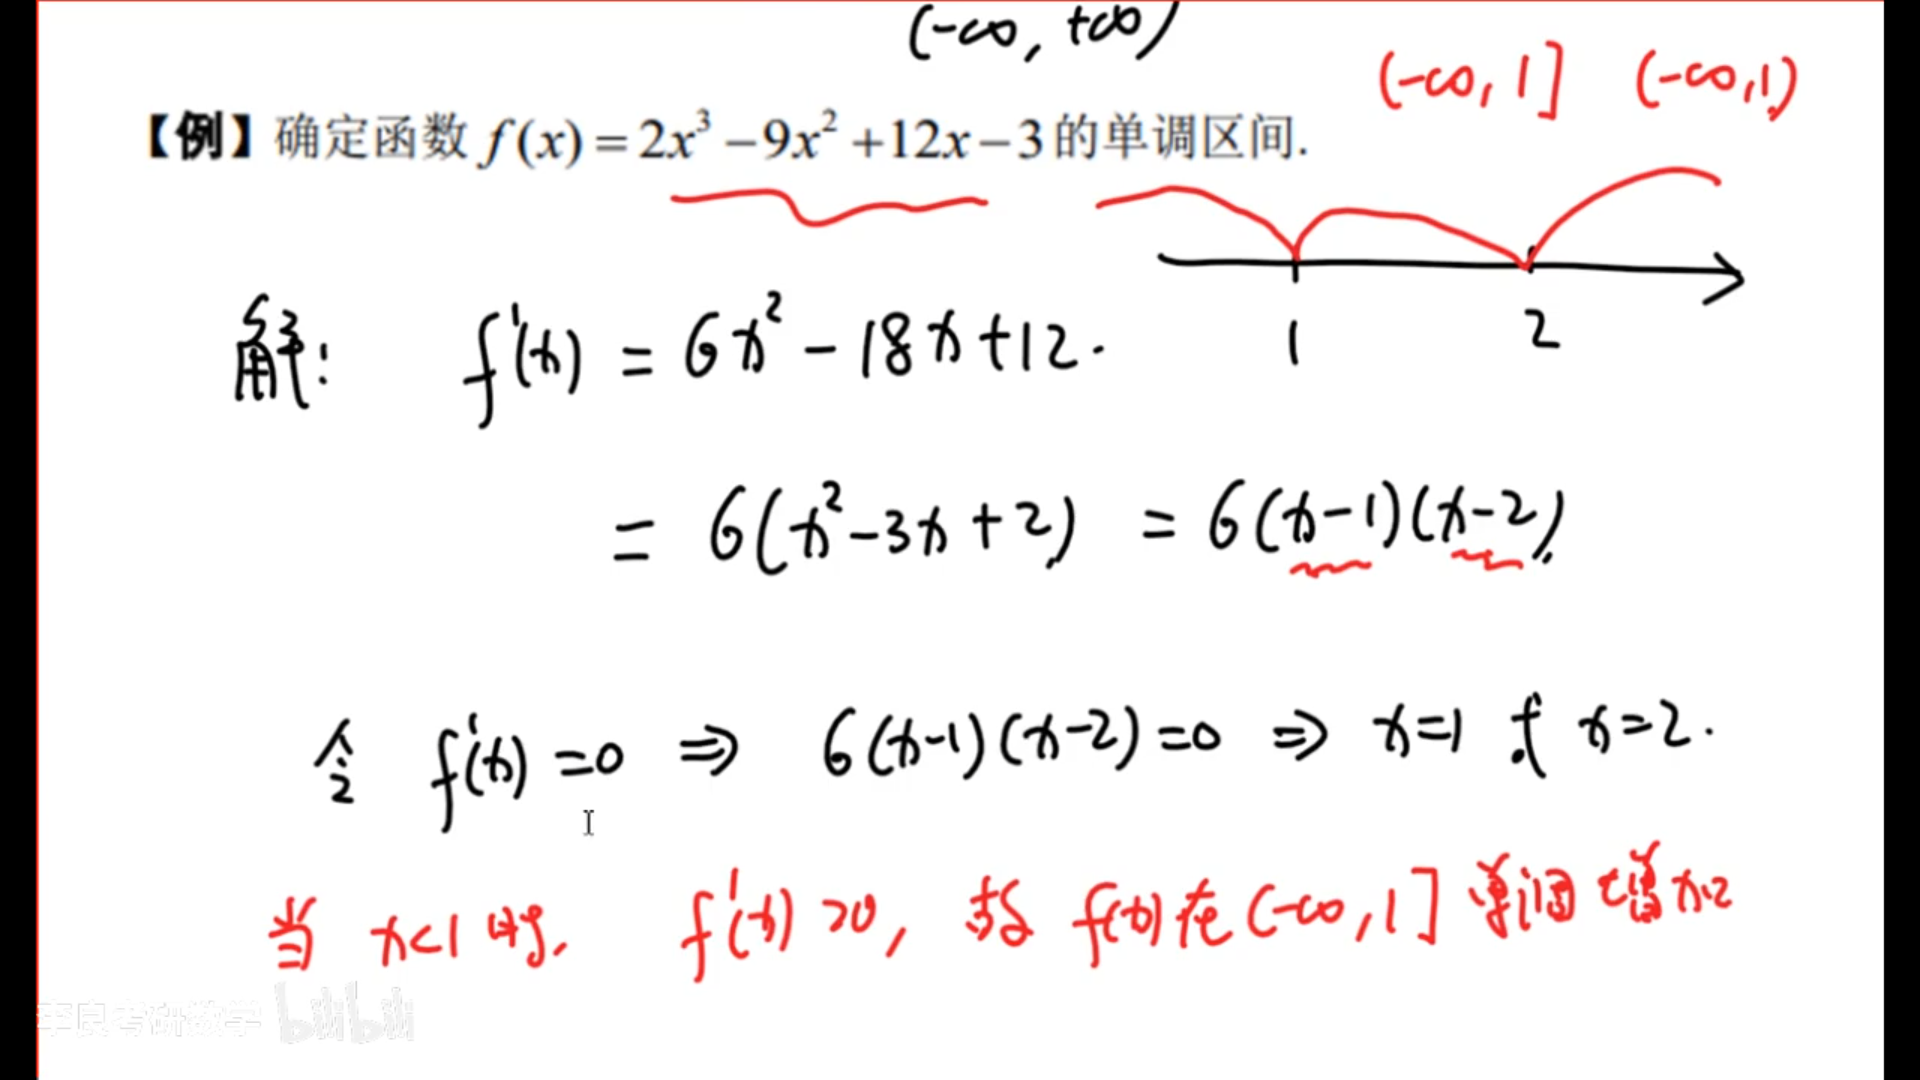 (-∞, +∞)
(-∞, 1] (-∞, 1)
【例】确定函数 f(x) = 2x³ − 9x² + 12x − 3 的单调区间.
1 2
解: f'(x) = 6x² - 18x + 12.
= 6(x² - 3x + 2) = 6(x-1)(x-2)
令 f'(x) = 0 ⇒ 6(x-1)(x-2) = 0 ⇒ x=1 或 x=2.
当 x<1 时, f'(x) >0, 故 f(x) 在 (-∞, 1] 单调增加
李良考研数学 bilibili